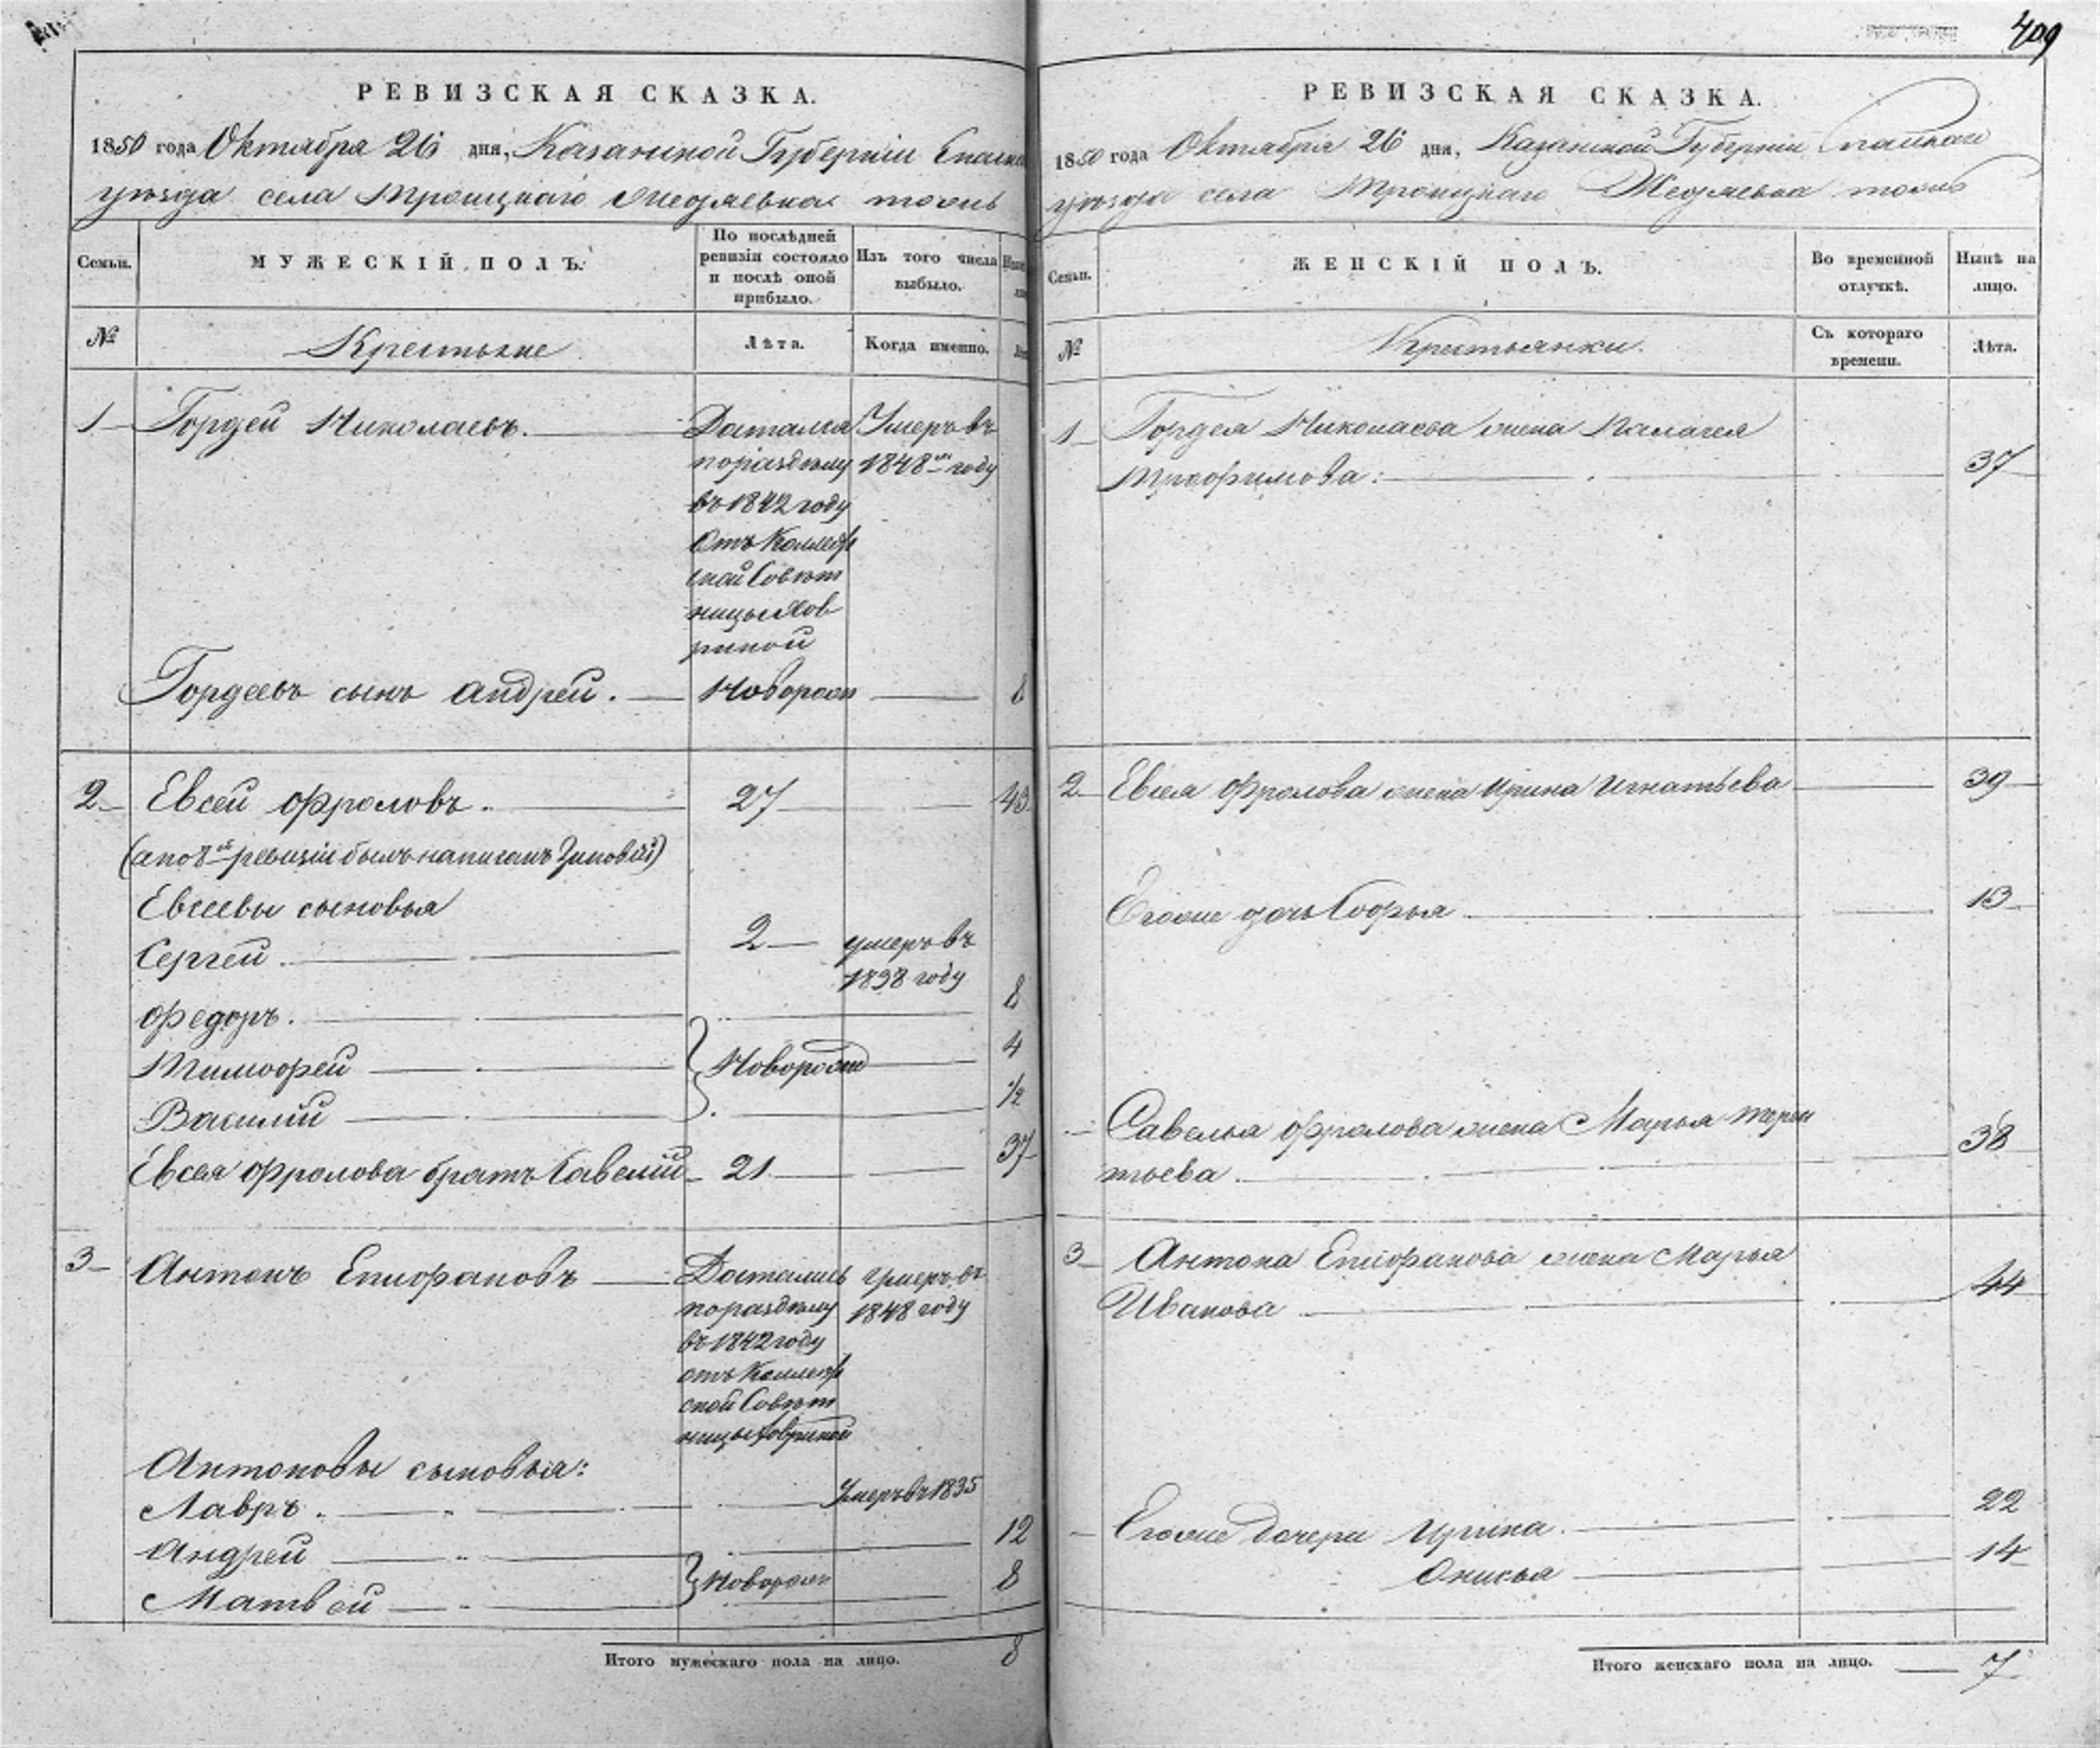 409
РЕВИЗСКАЯ СКАЗКА.
1850 года Октября 26 дня, Казанской Губернии Спаска
уѣзда села Троицкаго Жедяевка тожъ
Семьи.
МУЖЕСКІЙ ПОЛЪ.
По послѣдней ревизіи состояло и послѣ оной прибыло.
Изъ того числа выбыло.
№
Крестьяне
Лѣта.
Когда именно.
1 Гордей Николаевъ.
Достался Умеръ въ
по раздѣлу 1848 году
въ 1842 году
Отъ Коллеж
ской Совѣт
ницы Хов
риной
Гордеевъ сынъ Андрей. Новорож 8
2 Евсей Фроловъ. 27 43
(а по 8й ревизіи былъ написанъ Зиновій)
Евсеевы сыновья
Сергей. 2 умеръ въ
1838 году
Федоръ. 8
Тимофей Новорож 4
Василий 1/2
Евсея Фролова братъ Савелий 21 37
3 Антонъ Епифановъ Достались умеръ въ
по раздѣлу 1848 году
въ 1842 году
отъ Коллеж
ской Совѣт
ницы Ховриной
Антоновы сыновья:
Лавръ. Умеръ въ 1835
Андрей 12
Матвей Новорож 8
Итого мужескаго пола на лицо. 8
РЕВИЗСКАЯ СКАЗКА.
1850 года Октября 26 дня, Казанской Губернии Спаскаго
уѣзда села Троицкаго Жедяевка тожъ
Семьи.
ЖЕНСКІЙ ПОЛЪ.
Во временной отлучкѣ.
Нынѣ на лицо.
№
Крестьянки.
Съ котораго времени.
Лѣта.
1 Гордея Николаева жена Палагея
Трофимова: 37
2 Евсея Фролова жена Ирина Игнатьева 39
Егоже дочь Софья 13
Савелья Фролова жена Марья Терен
тьева. 38
3 Антона Епифанова жена Марья
Иванова 44
Егоже дочери Ирина. 22
Онисья 14
Итого женскаго пола на лицо. 7